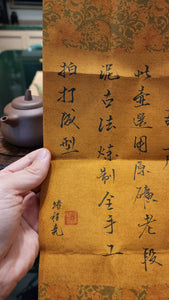 此壶选用原礦老段
泥古法煉制全手工
拍打成型